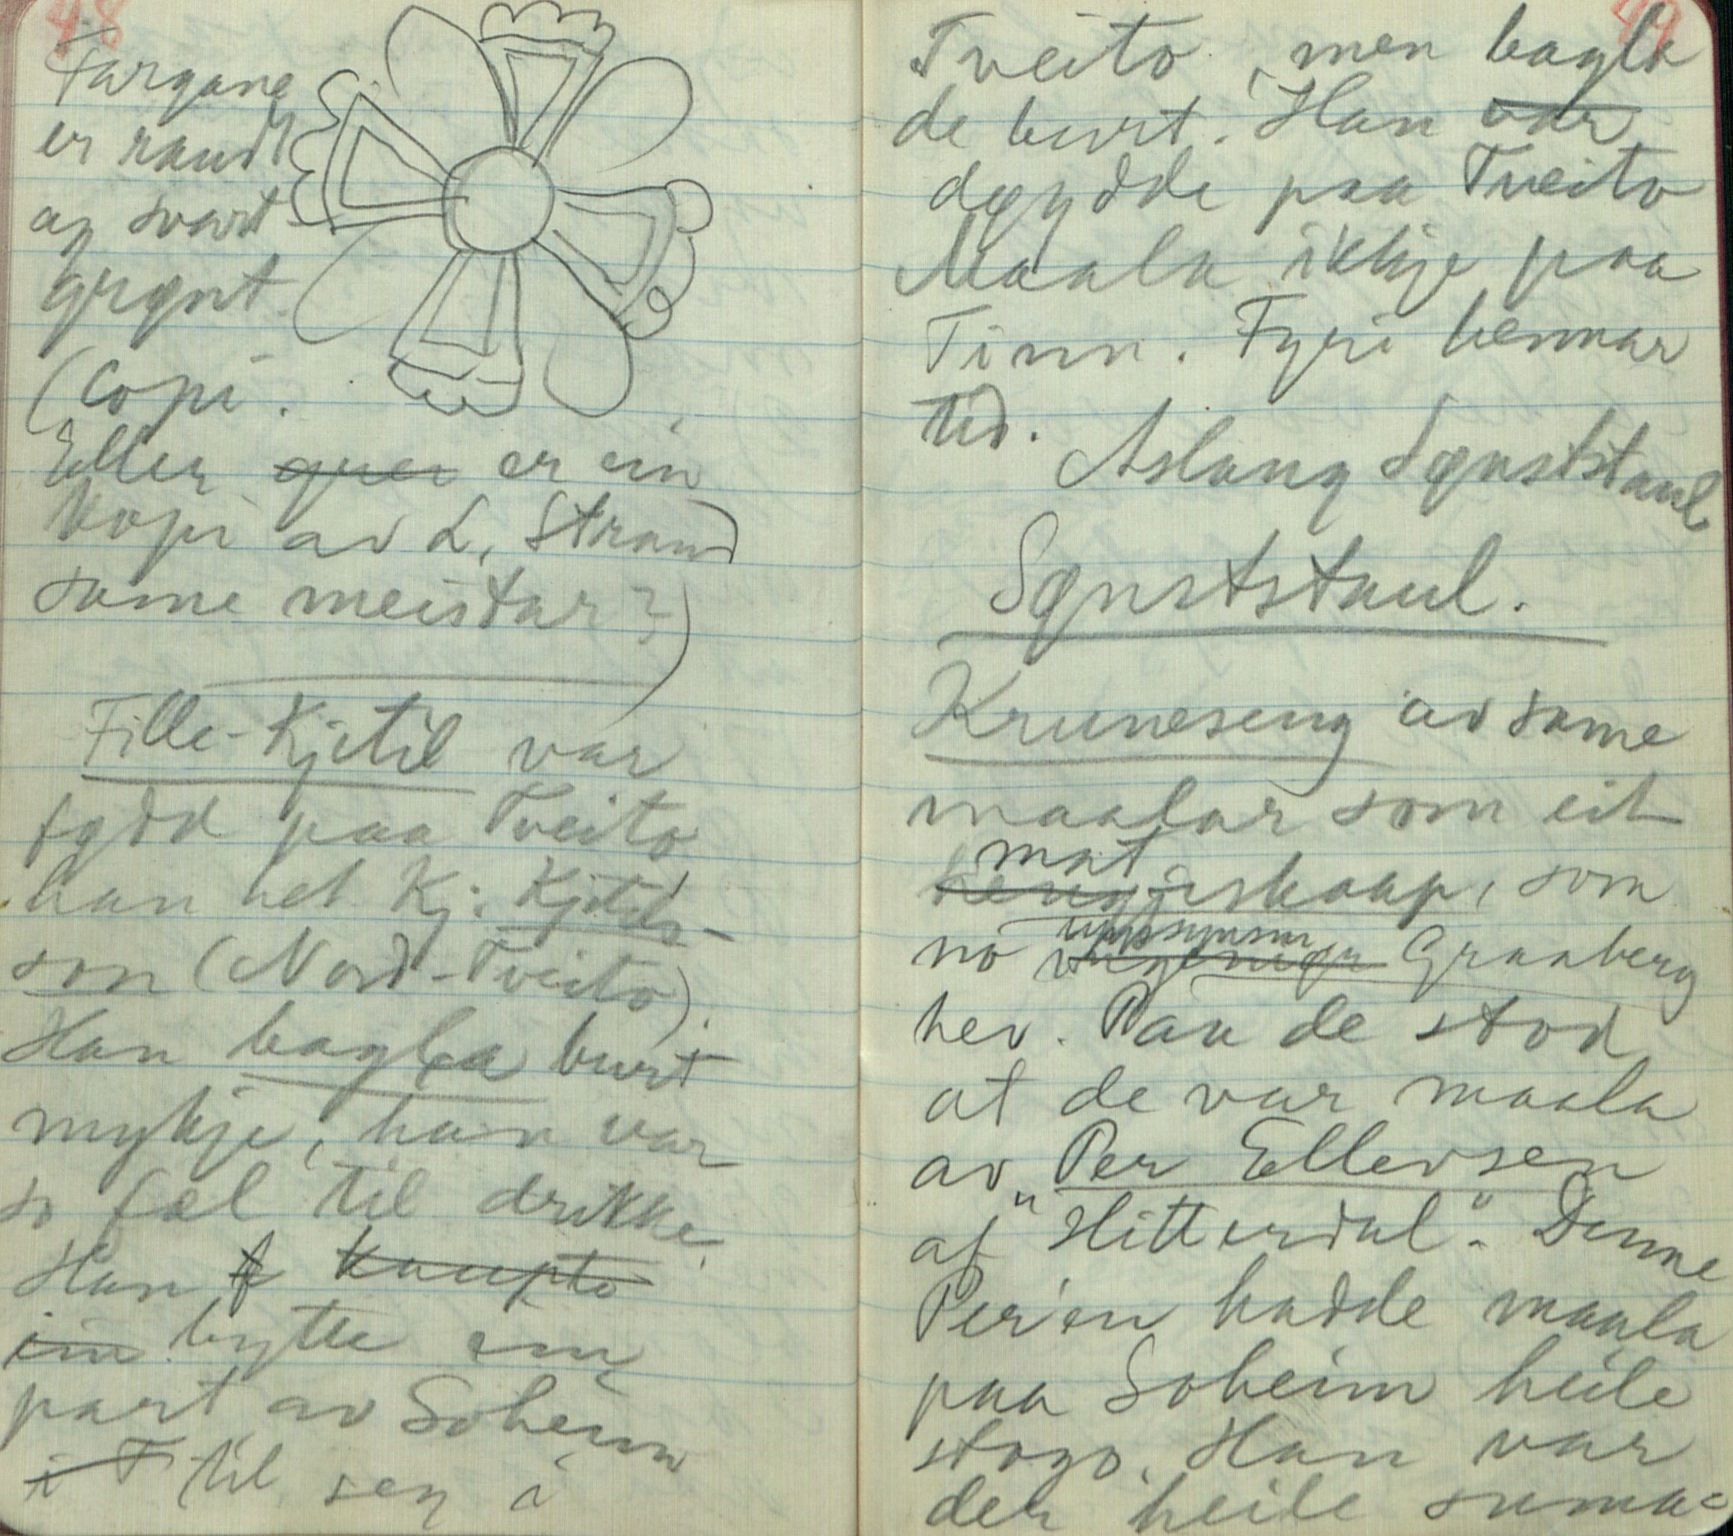 48
Fargane
er raudt
og svart
grønt.
(Copi.
Eller er ein
Kopi av L. Strand
same meistar?)
Fille-Kjetil var
fødd paa Tveito
han het Kj. Kjetils-
son (Nord-Tveito).
Han bagla burt
mykje, han var
so fæl til drikke.
Han f kaupto
ein bytte ein
part av Soheim
i T til seg i
49
Tveito, men bagla
de burt. Han var
døydde paa Tveito
Maala ikkje paa
Tinn. Fyri hennar
tid.
Aslaug Sønststaul
Sønststaul.
Kruneseng av same
maalar som eit
mat
skaap, som
no uppsynsm Graaberg
hev. Paa de stod
at de var maala
av Per Ellevsen
af "Hitterdal". Denne
Per'en hadde maala
paa Soheim heile
stogo. Han var
der heile suma=